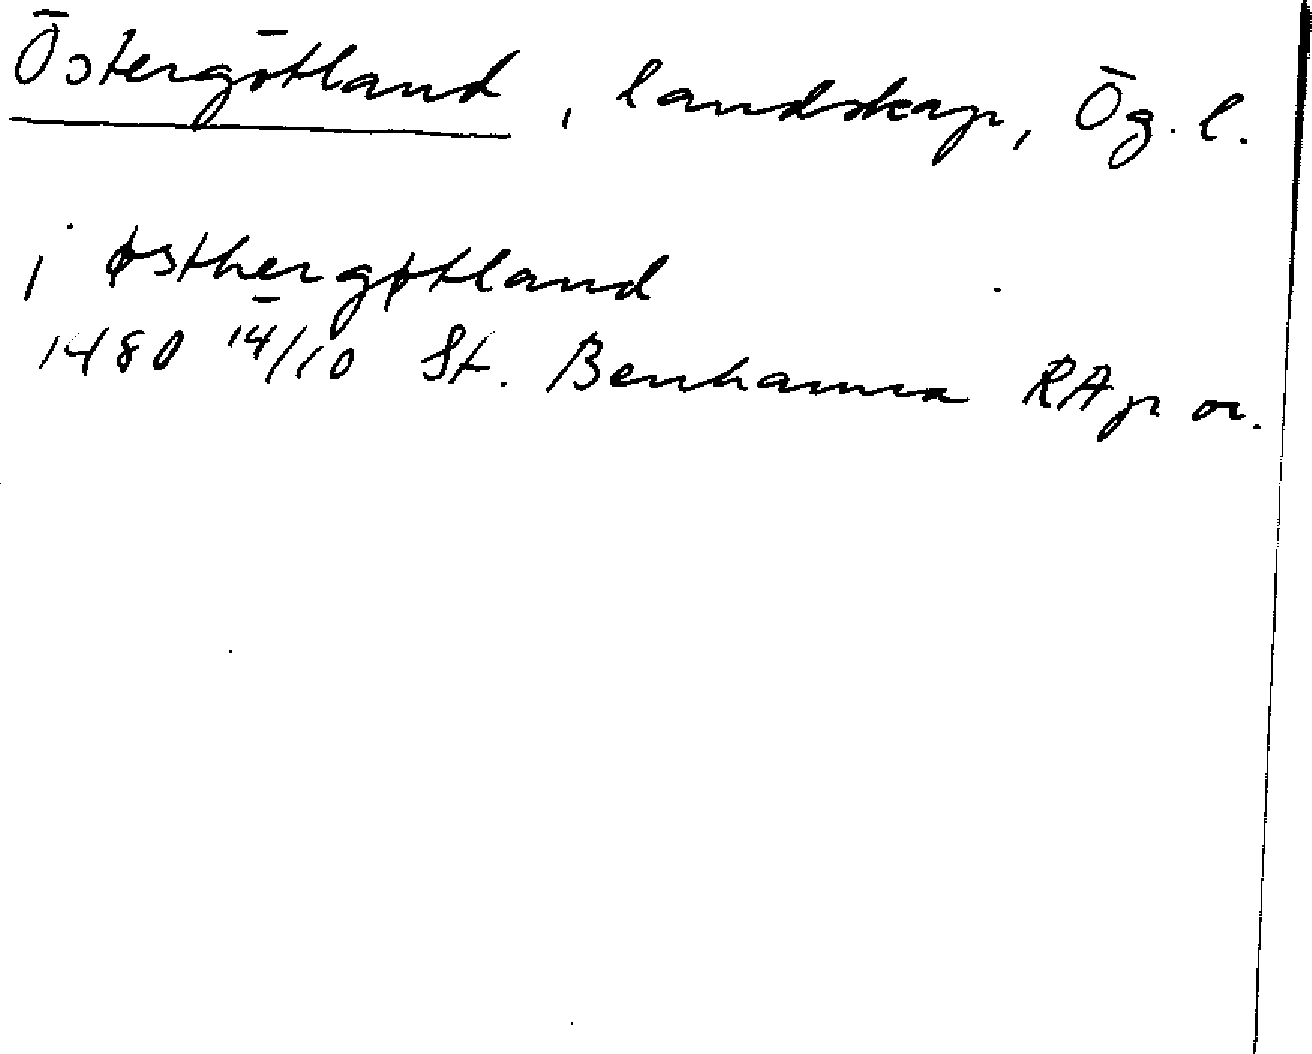 Östergötland, landskap, Ög. l.
i østhergøtland
1480 14/10 St. Benhamra RA p or.